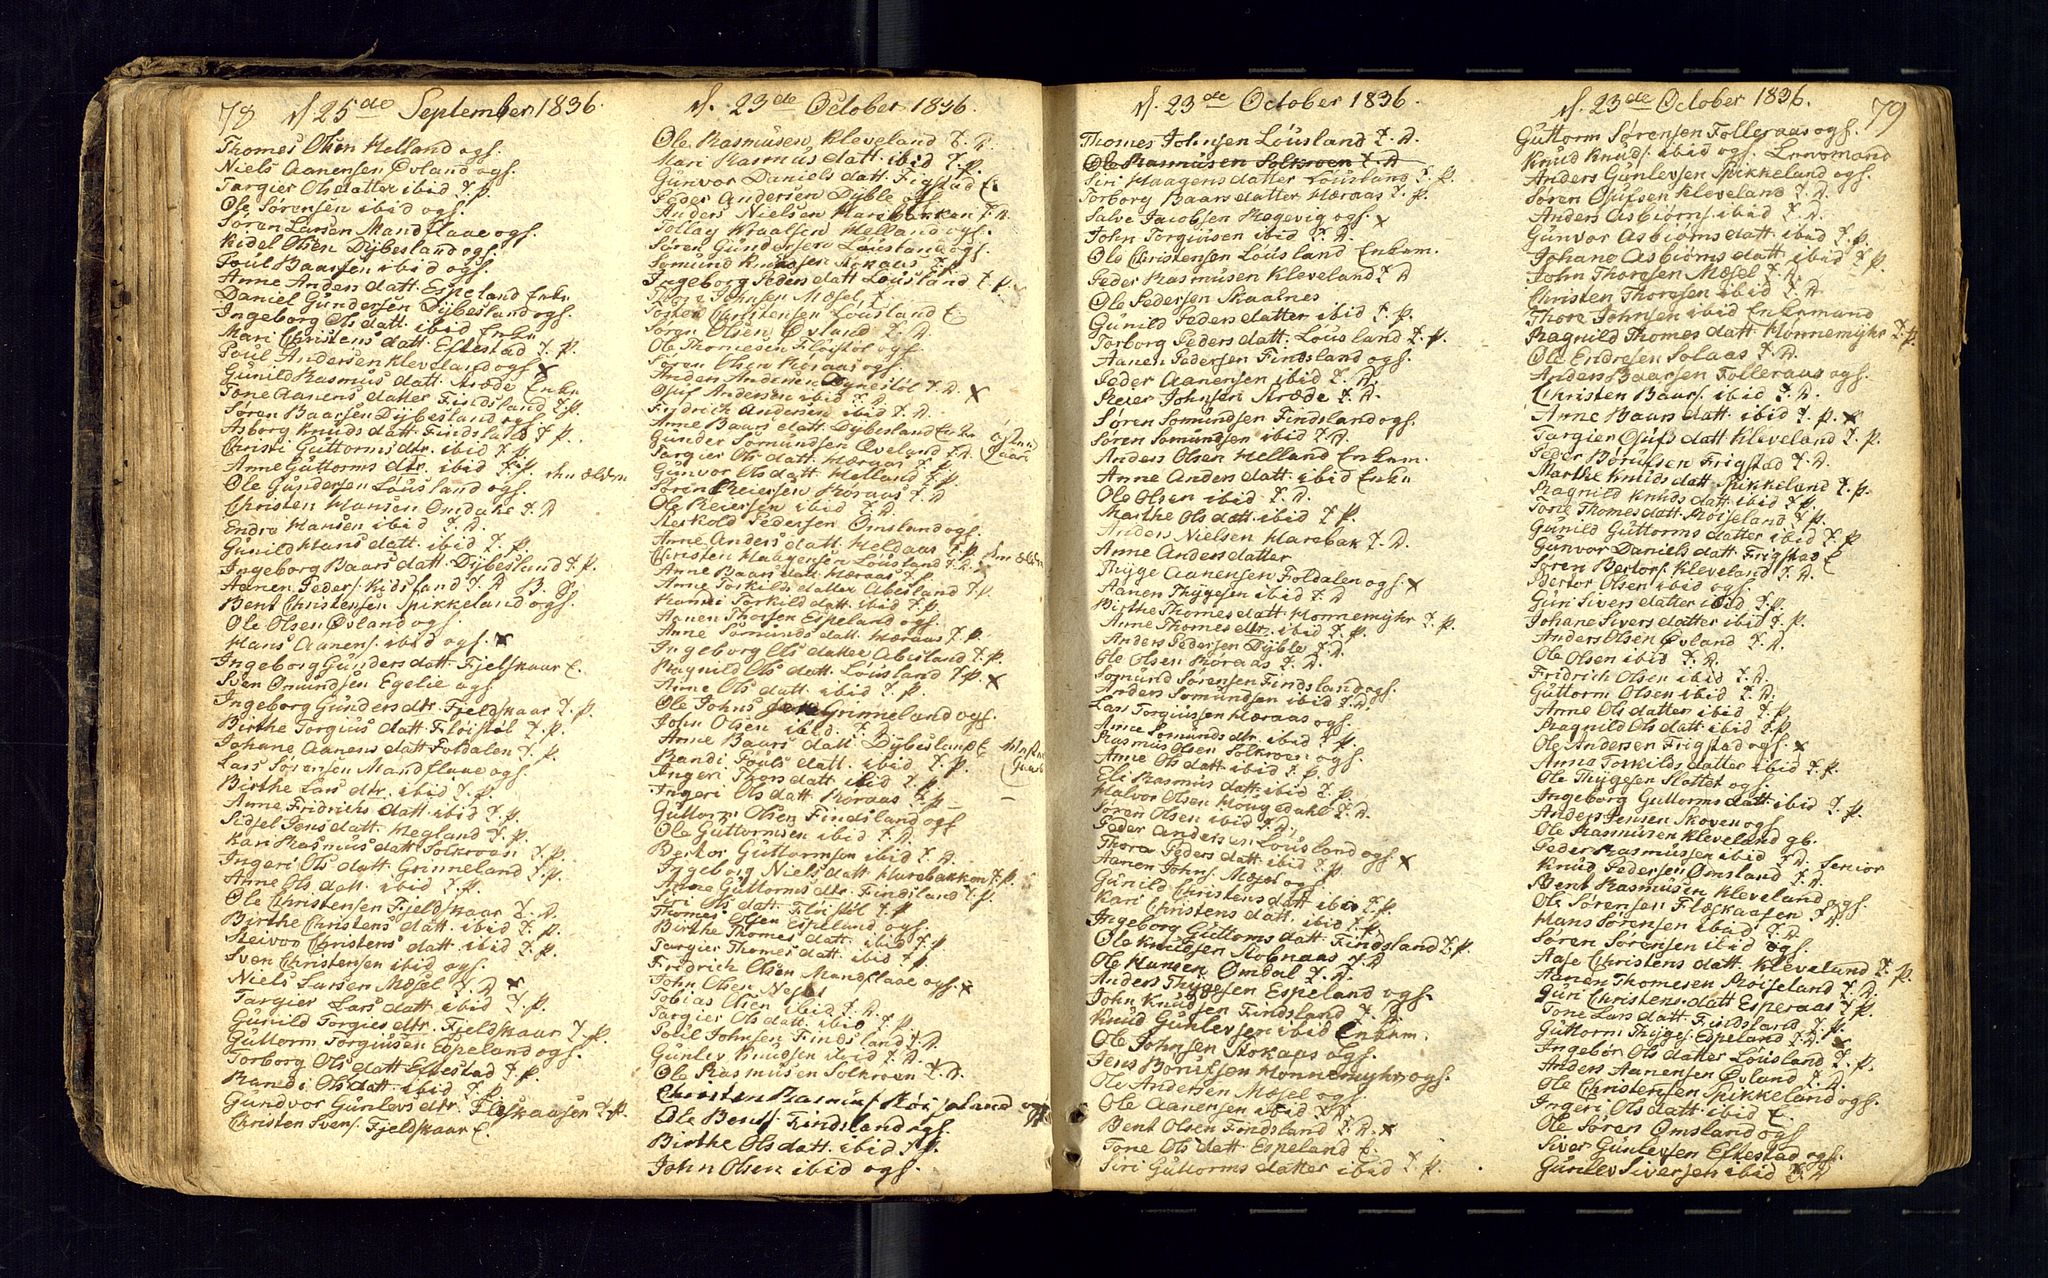 78 d. 25de September 1836.
Thomes Olsen Helland ogs.
Niels Aanensen Øvland ogs.
Targier Olsdatter ibid T. P.
Ole Sørensen ibid ogs.
Søren Larsen Mandflaae ogs.
Kidel Olsen Dÿbesland ogs.
Poul Baarsen ibid ogs.
Anne Anders datt. Espeland Enkn
Daniel Gundersen Dÿbesland ogs.
Ingeborg Ols datt. ibid Enkn
Mari Christens datt. Eftestad T. P.
Poul Andersen Kleveland ogs x
Gunild Rasmus datt. Træde Enkn
Tone Aanens datter Findsland T. P.
Søren Baarsen Dÿbesland ogs
Asborg Knuds datt. Findsland T P.
Christi Guttorms dtr. ibid T. P.
Anne Guttorms dtr. ibid T. P.
Ole Gundersen Løusland ogs.
Christen Hansen Omdahl T. D
Endre Hansen ibid T. D.
Gunild Hans datt. ibid T. P.
Ingeborg Baars datt. Dÿbesland T. P.
Aanen Peders. Kidsland T. D B. S
Bent Christensen Spikkeland ogs.
Ole Olsen Øvland ogs.
Hans Aanens. ibid ogs. x
Ingeborg Gunders datt. Fjelskaar E.
Sven Omundsen Egelie ogs.
Ingeborg Gunders dtr Fjeldskaar T. P.
Birthe Torgius datt Fløistøl T. P.
Johane Aanens datt Foldalen T. P.
Lars Sørensen Mandflaae ogs.
Birthe Lars dtr. ibid T. P.
Anne Fridrichs datt. ibid T. P.
Sidsel Jens datt. Hegland T. P.
Kari Rasmus datt Solkroen T. P.
Ingeri Ols datt. Grinneland T. P.
Anne Ols datt. ibid T. P.
Ole Christensen Fjeldskaar T. D.
Birthe Christens datt. ibid T. P.
Steivor Christens datt. ibid T. P.
Sven Christensen ibid ogs.
Niels Larsen Møsel T. D x
Targier Lars datt. ibid T. P.
Gunild Torgies dtr. Fjeldskaar T. P.
Guttorm Torgiusen Espeland ogs.
Torborg Ols datt Eftestad T. P.
Randi Ols datt. ibid T. P.
Gundvor Gunlevs dtr. Fleskaasen T. P.
Christen Svens. Fjeldskaar E.
d. 23de October 1836.
Ole Rasmusen Kleveland T. D.
Mari Rasmus datt. ibid T. P.
Gunvor Daniels datt. Frigstad E.
Peder Andersen Dÿble ogs
Anders Nielsen Harebakken T. D.
Tollag Kraalsen Helland ogs.
Søren Gundersen Løusland ogs.
Somund Knudsen Stokaas T. D
Ingeborg Peders datt. Løusland T. P.
Thore Johnsen Møsel T
Torsten Christensen Løusland E.
Søren Olsen Øvland T. D.
Ole Thomesen Fløistøl ogs
Søren Olsen Røraas ogs.
Anders Andersen Øÿnestøl T. D. x
Osuf Andersen ibid T. D.
Fridrich Andersen ibid T. D.
Anne Baars datt. Dÿbesland Enkn
Gunder Somundsen Øveland T. D.
Targier Ols datt. Hæraas T. P.
Gunvor Ols datt. Helland T. P.
Søren Reiersen Røraas T. D
Ole Reiersen ibid T. D.
Terkold Pedersen Omsland ogs.
Anne Anders datt. Heldaas T. P.
Christen Haagensen Løusland T. D.
Anne Baars datt. Hæraas T. P.
Anne Torkilds datter Abesland T. P.
Randi Torkild datt. ibid T. P.
Aanen Thorsen Espeland ogs.
Anne Somunds datt. Hæraas T. P.
Ingeborg Ols datter Abisland T. P.
Ragnild Ols datt. Løusland T. P. x
Anne Ols datt. ibid T. P.
Ole Johns Grinneland ogs.
John Olsen ibid T.
Anne Baars datt. Dÿbesland E
Randi Pouls datt. ibid T. P.
Ingeri Thors datt. ibid T. P.
Ingeri Ols datt. Røraas T. P.
Guttorm Olsen Findsland ogs
Ole Guttormsen ibid T. D.
Bertor Guttormsen ibid T. D.
Ingeborg Niels datt. Harebakken T. P.
Anne Guttorms dtr. Findsland T. P.
Siri Ols datt. Fløistøl T. P.
Thomes Olsen Espeland ogs.
Birthe Thomes datt. ibid T. P
Targier Thomes datt. ibid T. P
Fridrich Olsen Mandflaae ogs. x
John Olsen
Tobias Olsen ibid T. D.
Targier Ols datt. ibid T. P
Poul Johnsen Findsland T. D.
Gunlev Knudsen ibid T. D.
Ole Rasmusen Solkroen T. D.
Christen Rasmus Røisaland ogs
Ole Bents. Findsland ogs.
Birthe Ols datt. ibid T. P.
John Olsen ibid ogs.
d. 23de October 1836.
Thomes Johnsen Løusland T. D.
Ole Rasmusen Solkroen T. D
Siri Haagens datter Løusland T. P.
Torborg Baars datter Hæraas T. P.
Salve Jacobsen Røgevig ogs. x
John Torgiusen ibid T. D.
Ole Christensen Løusland Enkem.
Peder Rasmusen Kleveland T. D
Ole Pedersen Skaalnes
Gunild Peders datter ibid T. P.
Torborg Peders datt. Løusland T. P.
Aanen Pedersen Findsland ogs.
Peder Aanensen ibid T. D.
Reier Johnsen Træde T. D.
Søren Somundsen Findsland ogs.
Søren Somundsen ibid T. D.
Anders Olsen Helland Enkem.
Anne Anders datt. ibid Enkn
Ole Olsen ibid T. D.
Marthe Ols datt. ibid T. P.
Anders Nielsen Harebak T. D.
Anne Andersdatter
Thÿge Aanensen Foldalen ogs. x
Aanen Thÿgesen ibid T. D.
Birthe Thomes datt. Honnemÿhr T. P.
Anne Thomes dtr. ibid T. P.
Anders Pedersen Dÿble T. D.
Ole Olsen Røraas T. D.
Sogmund Sørensen Findsland ogs.
Anders Somundsen ibid T. D.
Lars Torgiussen Hæraas ogs.
Anne Somunds dtr. ibid T. P.
Rasmus Olsen Solkroen ogs.
Anne Ols datt. ibid T. P.
Eli Rasmus datt. ibid T. P.
Halvor Olsen Hougedahl T. D.
Søren Olsen ibid T. D.
Peder Andersen Løusland ogs x
Thora Peders datt. ibid T. P.
Aanen Johns. Møsel ogs
Gunild Christens datt. ibid T. P.
Kari Christens datt. ibid T. P.
Ingeborg Guttorms datt. Findsland T. P.
Ole Knudsen Stobnaas T. D
Ole Hansen Omdal T. D.
Anders Thÿgesen Espeland ogs.
John Knudsen Findsland T. D.
Knud Gunlevsen ibid Enkem.
Ole Johnsen Stokaas ogs.
Jens Børufsen Honnemÿhr ogs.
Ole Andersen Møsel ogs.
Ole Aanensen ibid T. D.
Bent Olsen Findsland T. D. x
Tone Ols datt. Espeland E.
Siri Guttorms datter ibid T. P.
d. 23de October 1836. 79
Guttorm Sørensen Folleraas ogs.
Knud Knuds. ibid ogs. Lensmand
Anders Gunlevsen Spikkeland ogs.
Søren Osufsen Kleveland T. D.
Anders Asbiørns. ibid T. D.
Gunvor Asbiørns datt. ibid T. P.
Johane Asbiørns datt. ibid T. P.
John Thoresen Møsel T. D.
Christen Thoresen ibid T. D
Thore Johnsen ibid Enkemand
Ragnild Thomes datt. Honnemÿhr T. P.
Ole Endresen Solaas T. D.
Anders Baarsen Folleraas ogs.
Christen Baars. ibid T. D.
Anne Baars datt. ibid T. P. x
Targier Osufs datt Kleveland T. P.
Peder Børufsen Frigstad T. D.
Marthe Knuds datt Spikkeland T. P.
Ragnild Knuds datt. ibid T. P.
Tone Thomes datt. Røiseland T. P.
Gunild Guttorms datter ibid T. P.
Gunvor Daniels datt. Frigstad E
Søren Bertors. Kleveland T. D.
Bertor Olsen ibid ogs.
Guri Sivers datter ibid T. P.
Johane Sivers datter ibid T. P.
Anders Olsen Øvland T. D.
Ole Olsen ibid T. D.
Fridrich Olsen ibid T. D
Guttorm Olsen ibid T. D.
Anne Ols datter ibid T. P.
Ragnild Ols datt. ibid T. P
Ole Andersen Frigstad ogs. x
Anna Torkilds datter ibid T. P.
Ole Thÿgesen Slottet ogs.
Ingeborg Guttorms datt. ibid T. P.
Anders Jensen Skoven ogs.
Ole Rasmusen Kleveland gb.
Peder Rasmussen ibid T. D. Senior
Knud Pedersen Omsland T. D.
Bent Rasmusen Kleveland ogs.
Ole Sørensen Fleskaasen T. D.
Hans Sørensen ibid T. D
Søren Sørensen ibid ogs.
Aase Christens datt. Kleveland T. P.
Aanen Thomesen Røiseland T. D.
Guri Christens datt Esperaas T. P.
Tone Lars datt. Findsland T. P.
Guttorm Thÿges. Espeland T. D. x
Ingebør Ols datter Løusland T. P.
Anders Aanensen Øvland T. D.
Ole Christensen Spikkeland ogs.
Ingeri Ols datt. ibid E.
Ole Søren Omsland ogs
Siver Gunlevsen Eftestad ogs.
Gunlev Siversen ibid T. D